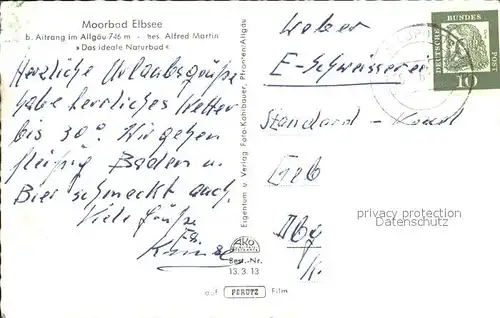 Moorbad Elbsee
b. Aitrang im Allgäu 746 m - bes. Alfred Martin
»Das ideale Naturbad«
Herzliche Urlaubsgrüße
habe herrliches Wetter
bis 30°. Wir gehen
fleißig Baden u.
Bier schmeckt auch.
Viele Grüße
Fa.
Eigentum u. Verlag Foto-Kohlbauer, Pfronten-Allgäu
Best.-Nr.
13.3.13
auf PERUTZ Film
DEUTSCHE BUNDESPOST
10
E-Schweisserei
Standard -
privacy protection
Datenschutz